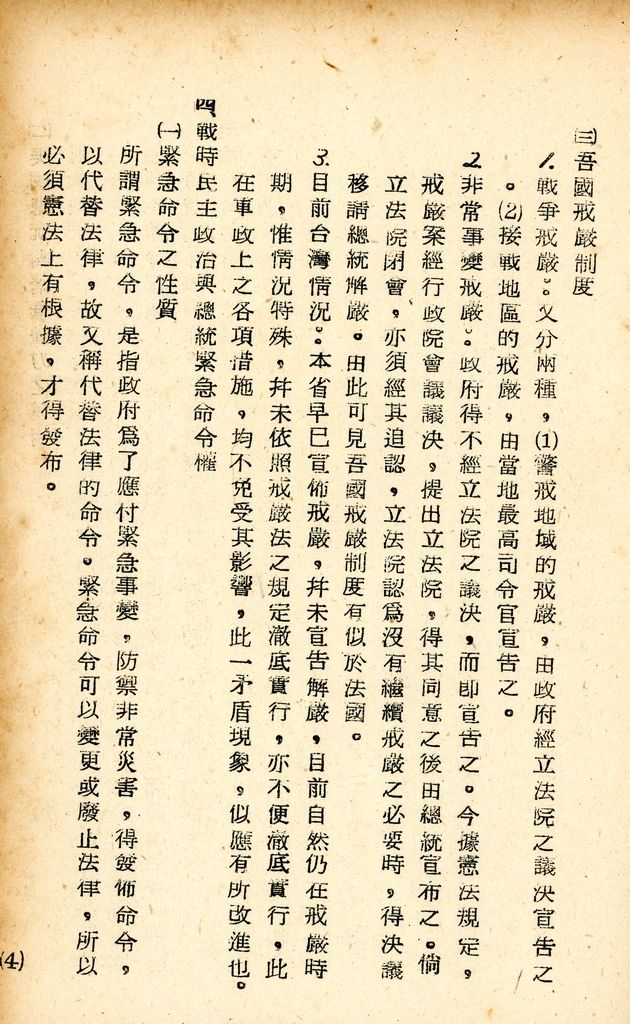 ㈢吾國戒嚴制度
1.戰爭戒嚴。又分兩種,(1)警戒地域的戒嚴,由政府經立法院之議決宣告之
。(2)接戰地區的戒嚴,由當地最高司令官宣告之。
2.非常事變戒嚴。政府得不經立法院之議決,而即宣告之。今據憲法規定,
戒嚴案經行政院會議議決,提出立法院,得其同意之後由總統宣布之。倘
立法院閉會,亦須經其追認,立法院認爲沒有繼續戒嚴之必要時,得決議
移請總統解嚴。由此可見吾國戒嚴制度有似於法國。
3.目前台灣情況。本省早已宣佈戒嚴,并未宣告解嚴,目前自然仍在戒嚴時
期,惟情況特殊,并未依照戒嚴法之規定澈底實行,亦不便澈底實行,此
在軍政上之各項措施,均不免受其影響,此一矛盾現象,似應有所改進也。
四戰時民主政治與總統緊急命令權
㈠緊急命令之性質
所謂緊急命令,是指政府爲了應付緊急事變,防禦非常災害,得發佈命令,
以代替法律,故又稱代替法律的命令。緊急命令可以變更或廢止法律,所以
必須憲法上有根據,才得發布。
(4)